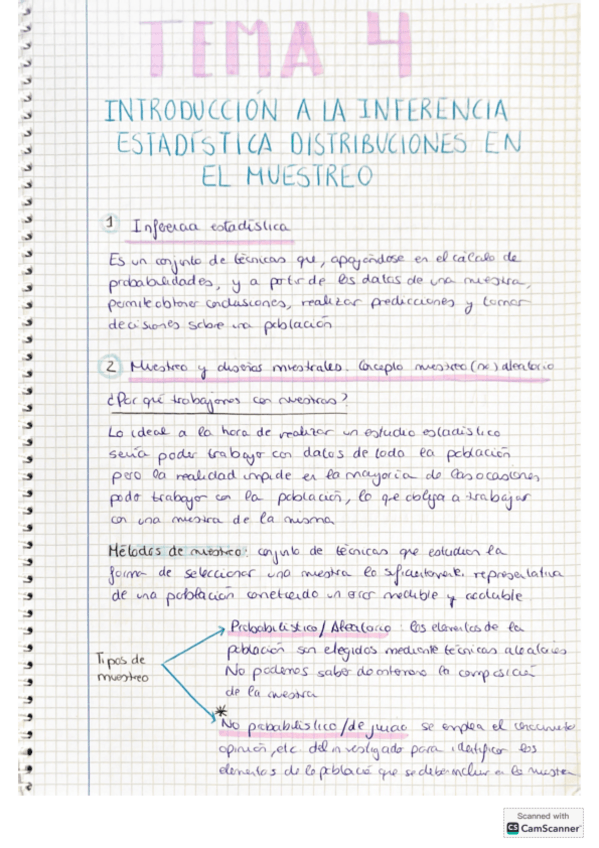 TEMA 4
INTRODUCCIÓN A LA INFERENCIA
ESTADÍSTICA DISTRIBUCIONES EN
EL MUESTREO
1 Inferencia estadística
Es un conjunto de técnicas que, apoyándose en el cálculo de
probabilidades, y a partir de los datos de una muestra,
permite obtener conclusiones, realizar predicciones y tomar
decisiones sobre una población
2 Muestreo y diseños muestrales. Concepto muestreo (no) aleatorio
¿Por qué trabajamos con muestras?
Lo ideal a la hora de realizar un estudio estadístico
sería poder trabajar con datos de toda la población
pero la realidad impide en la mayoría de las ocasiones
poder trabajar con la población, lo que obliga a trabajar
con una muestra de la misma
Métodos de muestreo: conjunto de técnicas que estudian la
forma de seleccionar una muestra lo suficientemente representativa
de una población cometiendo un error medible y acotable
Probabilístico / Aleatorio : los elementos de la
población son elegidos mediante técnicas aleatorias
Tipos de
muestreo
No podemos saber de antemano la composición
de la muestra
* No probabilístico / de juicio se emplea el conocimiento
opinión, etc. del investigador para identificar los
elementos de la población que se deben incluir en la muestra
Scanned with
CS CamScanner